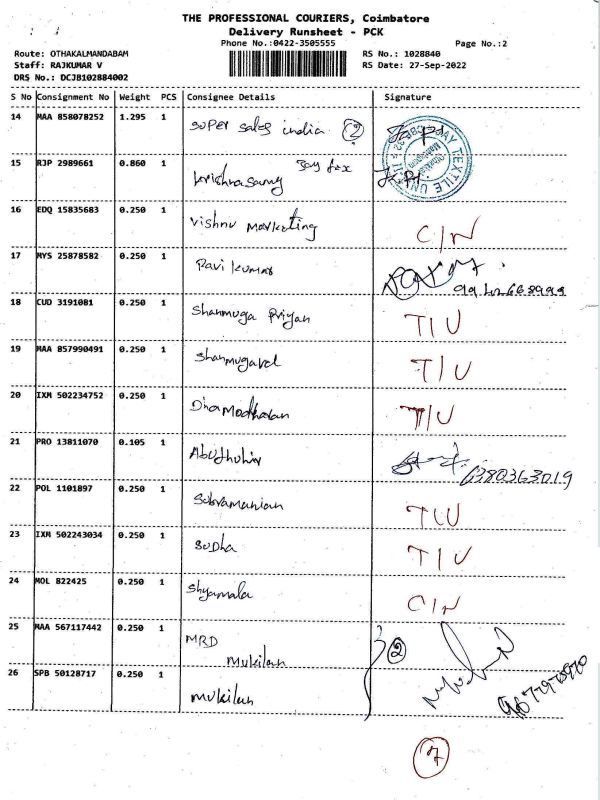 THE PROFESSIONAL COURIERS, Coimbatore
Delivery Runsheet - PCK
Phone No.:0422-3505555
Page No.:2
Route: OTHAKALMANDABAM
RS No.: 1028840
Staff: RAJKUMAR V
RS Date: 27-Sep-2022
DRS No.: DCJB102884002
S No Consignment No Weight PCS Consignee Details Signature
14 MAA 858078252 1.295 1 super sales india 2
15 RJP 2989661 0.860 1 krishnasamy
16 EDQ 15835683 0.250 1 Vishnu Marketing C/N
17 MYS 25878582 0.250 1 Ravi kumar
18 CUD 3191081 0.250 1 Shanmuga Priyan T/U
19 MAA 857990491 0.250 1 Shanmugavel T/U
20 IXM 502234752 0.250 1 Dhamodharan T/U
21 PRO 13811070 0.105 1 6380363019
22 POL 1101897 0.250 1 Subramanian T/U
23 IXM 502243034 0.250 1 SuDha T/U
24 MOL 822425 0.250 1 Shyamala C/N
25 MAA 567117442 0.250 1 MRD
Mukilan 2
26 SPB 50128717 0.250 1 Mukilan
7